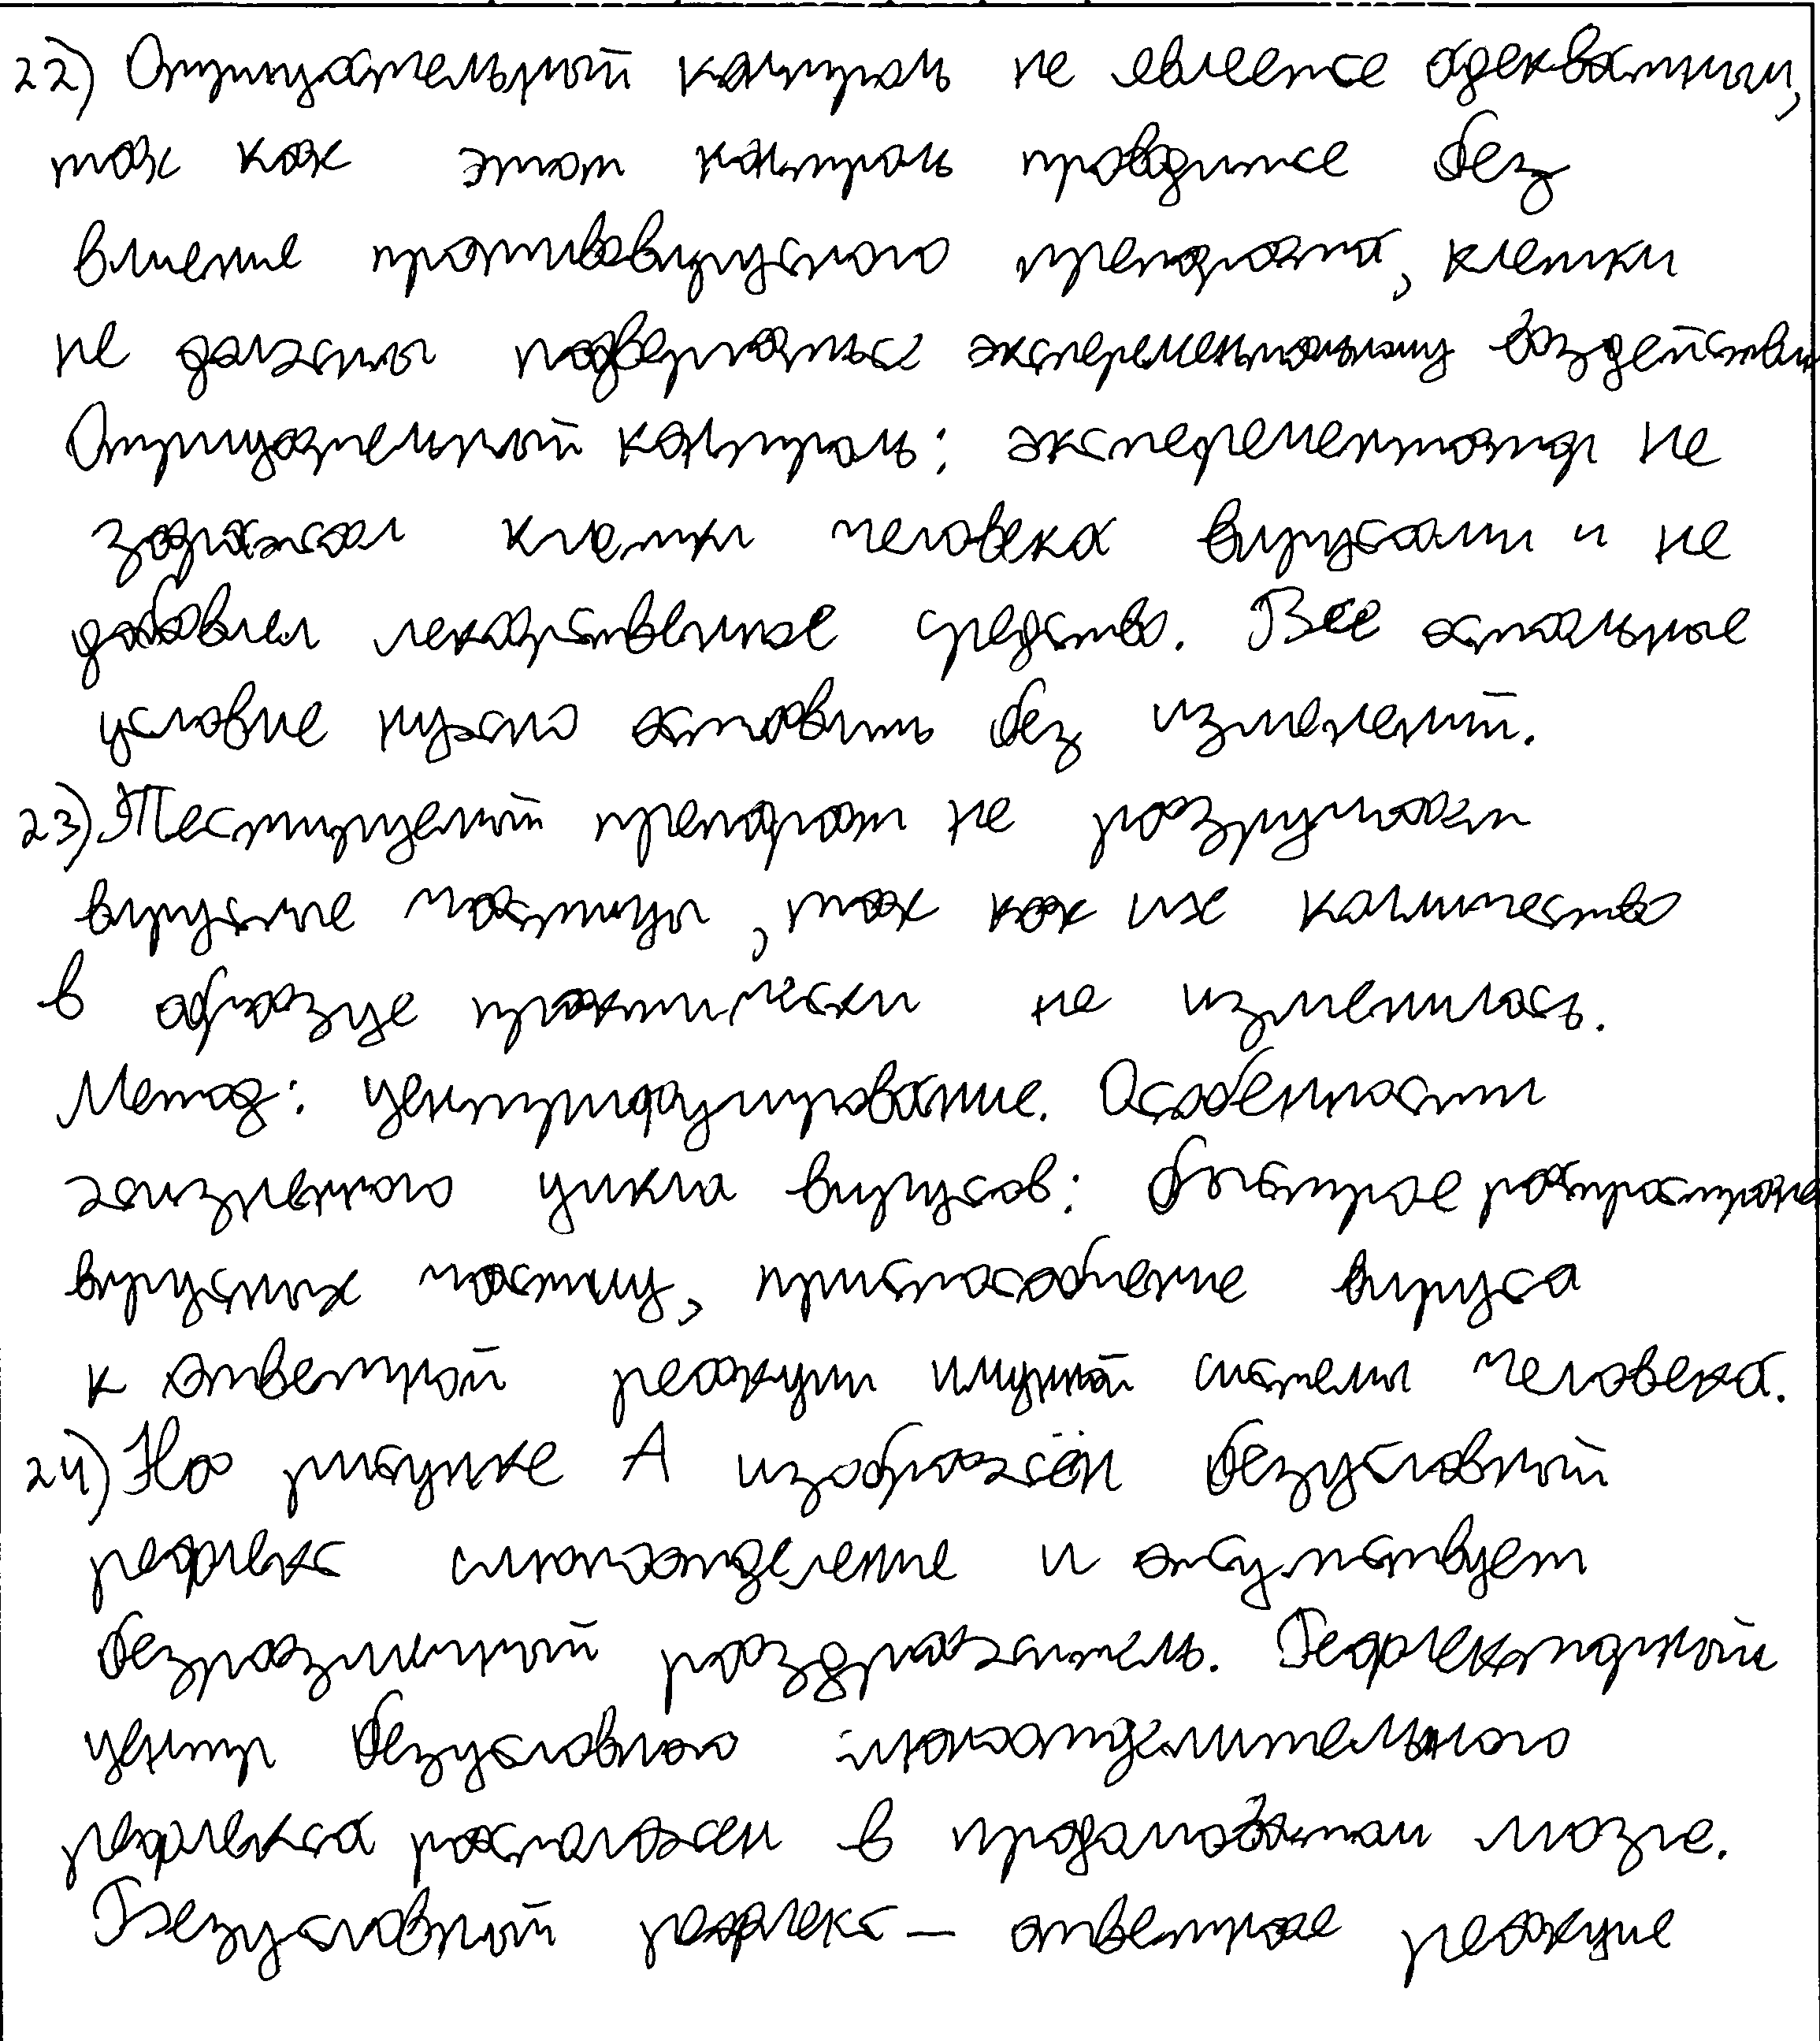 22) Отрицательный контроль не евлеетсе адекватным,
так как этот контроль проводитсе без
влиение противовирусного препарата, клетки
не должны подвергатьсе эксперементальному воздействию
Отрицательный контроль: эксперементатор не
заражал клетки человека вирусами и не
добавлел лекарственное средство. Все остальные
условие нужно оставить без изменений.
23) Тестируемый препарат не разрушает
вирусные частицы, так как их количество
в образце практически не изменилось.
Метод: центрифугирование. Особенности
жизненного цикла вирусов: быстрое распростране
вирусных частиц, приспособление вируса
к ответной реакции имунной системы человека.
24) На рисунке А изображён безусловный
рефлекс слюноотделение и отсутствует
безразличный раздражитель. Рефлекторный
центр безусловного слюноотделительного
рефлекса расположен в продолговатом мозге.
Безусловный рефлекс – ответное реакцие